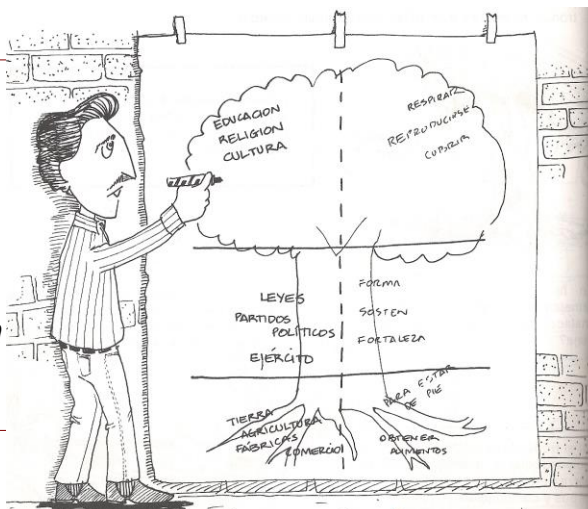 EDUCACION
RELIGION
CULTURA
RESPIRAR
REPRODUCIRSE
CUBRIR
LEYES
PARTIDOS
POLÍTICOS
EJÉRCITO
FORMA
SOSTEN
FORTALEZA
TIERRA
AGRICULTURA
FÁBRICAS
COMERCIO
PARA ESTAR
DE PIÉ
OBTENER
ALIMENTOS